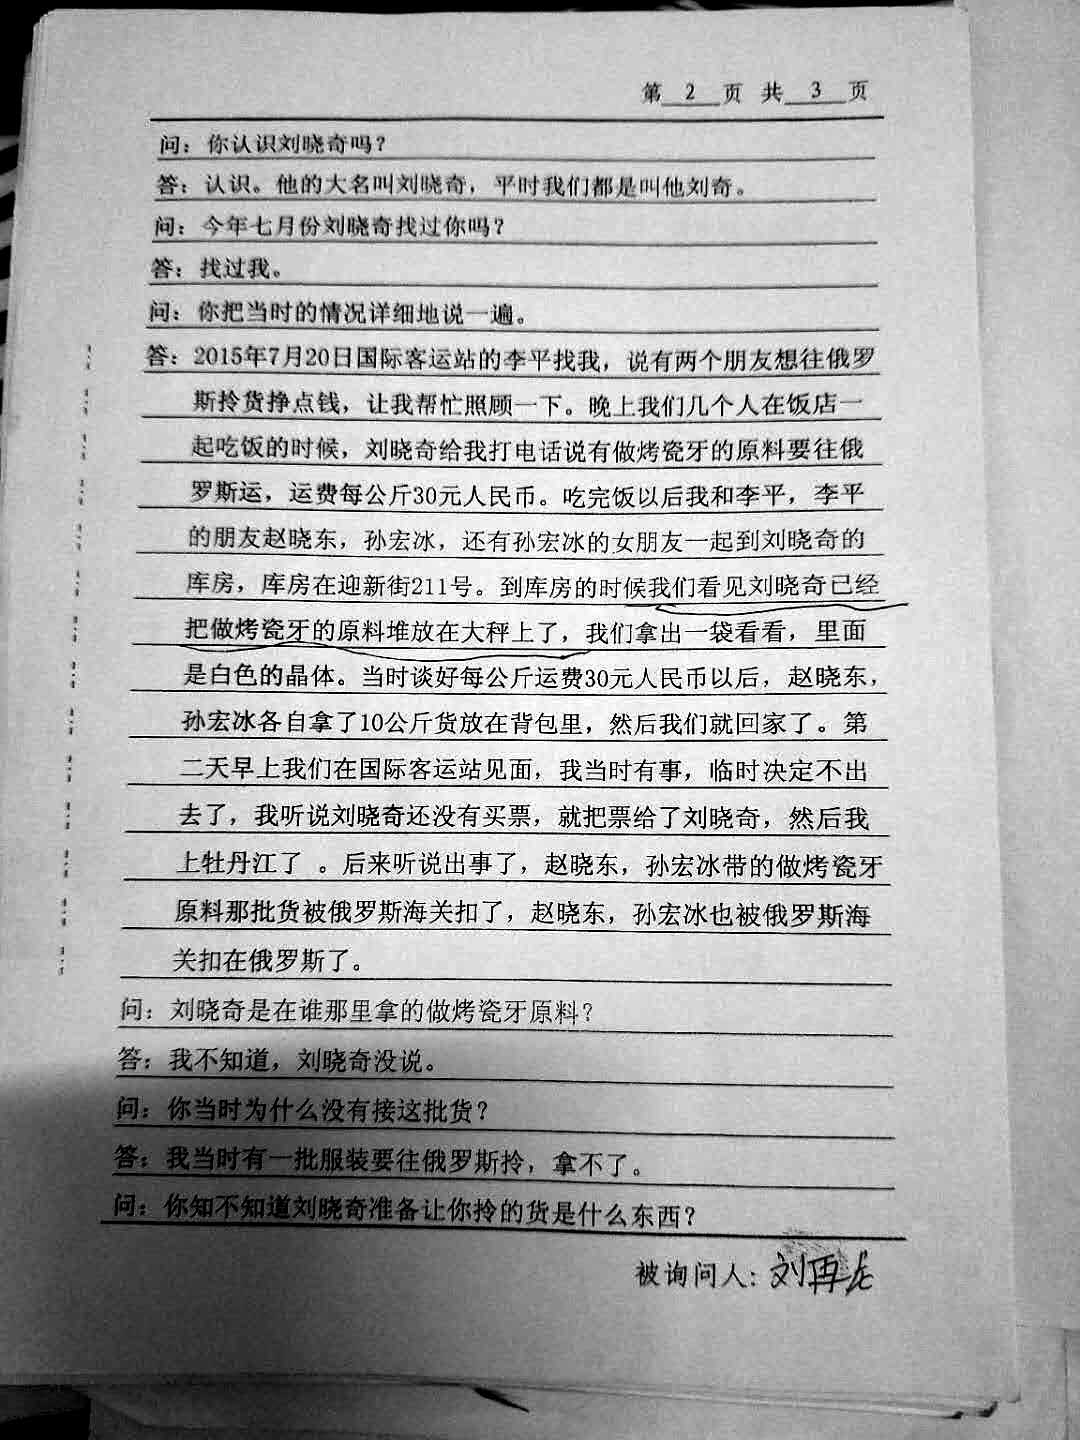 第 2 页 共 3 页
问：你认识刘晓奇吗？
答：认识。他的大名叫刘晓奇，平时我们都是叫他刘奇。
问：今年七月份刘晓奇找过你吗？
答：找过我。
问：你把当时的情况详细地说一遍。
答：2015年7月20日国际客运站的李平找我，说有两个朋友想往俄罗
斯拎货挣点钱，让我帮忙照顾一下。晚上我们几个人在饭店一
起吃饭的时候，刘晓奇给我打电话说有做烤瓷牙的原料要往俄
罗斯运，运费每公斤30元人民币。吃完饭以后我和李平，李平
的朋友赵晓东，孙宏冰，还有孙宏冰的女朋友一起到刘晓奇的
库房，库房在迎新街211号。到库房的时候我们看见刘晓奇已经
把做烤瓷牙的原料堆放在大秤上了，我们拿出一袋看看，里面
是白色的晶体。当时谈好每公斤运费30元人民币以后，赵晓东，
孙宏冰各自拿了10公斤货放在背包里，然后我们就回家了。第
二天早上我们在国际客运站见面，我当时有事，临时决定不出
去了，我听说刘晓奇还没有买票，就把票给了刘晓奇，然后我
上牡丹江了 。后来听说出事了，赵晓东，孙宏冰带的做烤瓷牙
原料那批货被俄罗斯海关扣了，赵晓东，孙宏冰也被俄罗斯海
关扣在俄罗斯了。
问：刘晓奇是在谁那里拿的做烤瓷牙原料？
答：我不知道，刘晓奇没说。
问：你当时为什么没有接这批货？
答：我当时有一批服装要往俄罗斯拎，拿不了。
问：你知不知道刘晓奇准备让你拎的货是什么东西？
被询问人：刘再龙